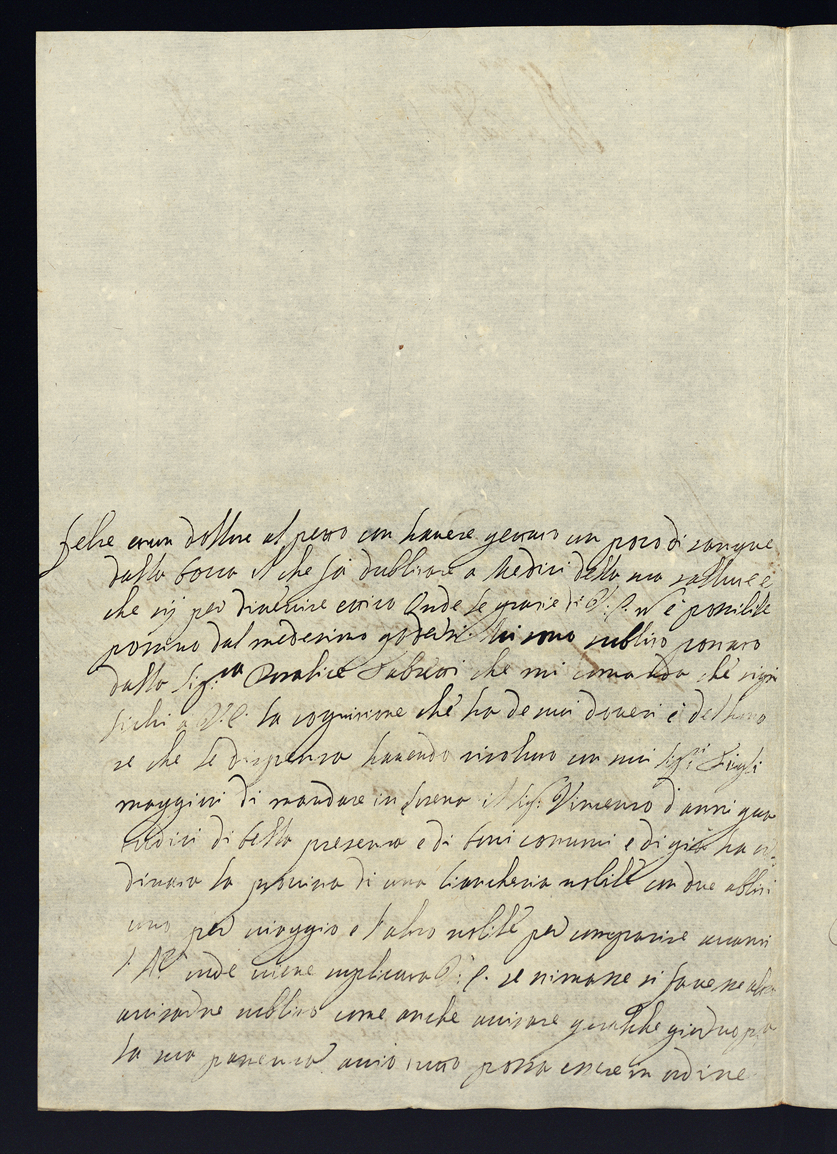 felice con un dollore al petto con havere gettato un poco di sangue
dalla bocca il che fà dubbitare a Medici della sua sallute e
che sij per divenire ettico Onde le grazie di V. E. n è possibile
possino dal medesimo godersi. Mi sono subbito portato
dalla Sig.ra Doralice che mi comanda che signi
fichi a V. E. la cognizione che ha de suoi doveri e del
se che le dispensa havendo risoluto con suoi Sig.i Figli
maggiori di mandare in il Sig. Vincenzo d'anni qua
tordici di bella presenza e di boni costumi e di già ha or
dinato la provista di una biancheria nobile con due abbiti
uno per viaggio e l'altro nobile per comparire avanti
onde viene supplicata V. E. se si facesse
avisarne subbito come anche avisare qualche giorno
la sua partenza acciò tutto possa essere in ordine